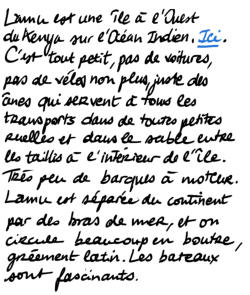 Lamu est une île à l'Ouest
du Kenya sur l'Océan Indien. Ici.
C'est tout petit, pas de voitures,
pas de vélos non plus, juste des
ânes qui servent à tous les
transports dans de toutes petites
ruelles et dans le sable entre
les taillis à l'intérieur de l'île.
Très peu de barques à moteur.
Lamu est séparée du continent
par des bras de mer, et on
circule beaucoup en boutre,
gréement latin. Les bateaux
sont fascinants.